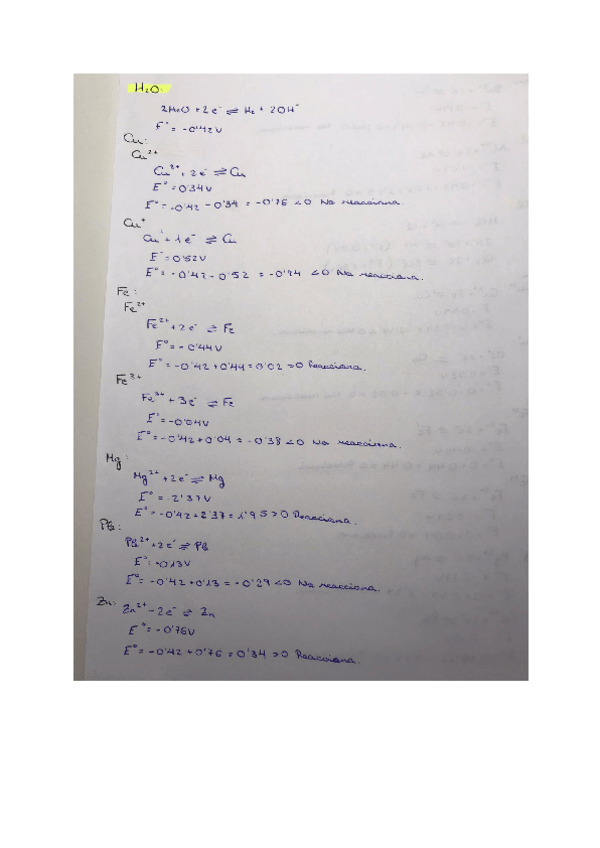 H₂O:
2H₂O + 2e⁻ ⇌ H₂ + 2OH⁻
E° = -0'42V
Cu:
Cu²⁺
Cu²⁺ + 2e⁻ ⇌ Cu
E° = 0'34V
E° = -0'42 - 0'34 = -0'76 < 0 No reacciona.
Cu⁺
Cu⁺ + 1e⁻ ⇌ Cu
E° = 0'52V
E° = -0'42 - 0'52 = -0'94 < 0 No reacciona.
Fe:
Fe²⁺
Fe²⁺ + 2e⁻ ⇌ Fe
E° = -0'44V
E° = -0'42 + 0'44 = 0'02 > 0 Reacciona.
Fe³⁺
Fe³⁺ + 3e⁻ ⇌ Fe
E° = -0'04V
E° = -0'42 + 0'04 = -0'38 < 0 No reacciona.
Mg:
Mg²⁺ + 2e⁻ ⇌ Mg
E° = -2'37V
E° = -0'42 + 2'37 = 1'95 > 0 Reacciona.
Pb:
Pb²⁺ + 2e⁻ ⇌ Pb
E° = -0'13V
E° = -0'42 + 0'13 = -0'29 < 0 No reacciona.
Zn: Zn²⁺ - 2e⁻ ⇌ Zn
E° = -0'76V
E° = -0'42 + 0'76 = 0'34 > 0 Reacciona.